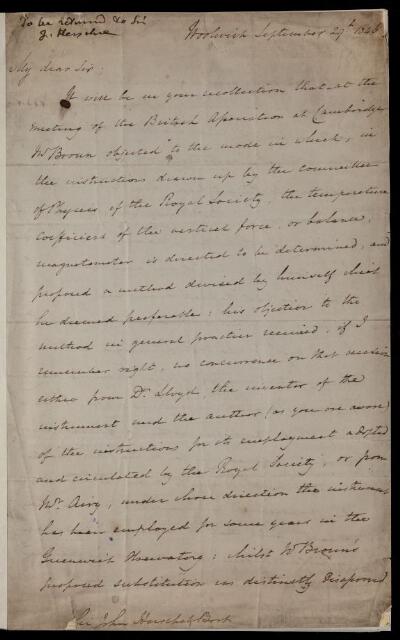 To be returned to Sir
J. Herschel
Woolwich September 29th 1845
My dear Sir
It will be in your recollection that at the
meeting of the British Association at Cambridge
Mr Broun objected to the mode in which, in
the instructions drawn up by the committee
of Physics of the Royal Society, the temperature
coefficient of the vertical force, or balance,
magnetometer is directed to be determined, and
proposed a method devised by himself which
he deemed preferable: his objection to the
method in general practice received, if I
remember right, no concurrence on that occasion
either from Dr. Lloyd, the inventor of the
instrument and the author (as you are aware)
of the instructions for its employment adopted
and circulated by the Royal Society, or from
Mr. Airy, under whose direction the instrument
has been employed for some years in the
Greenwich Observatory: whilst Mr Broun's
proposed substitution was distinctly disapproved
Sir John Herschel Bart